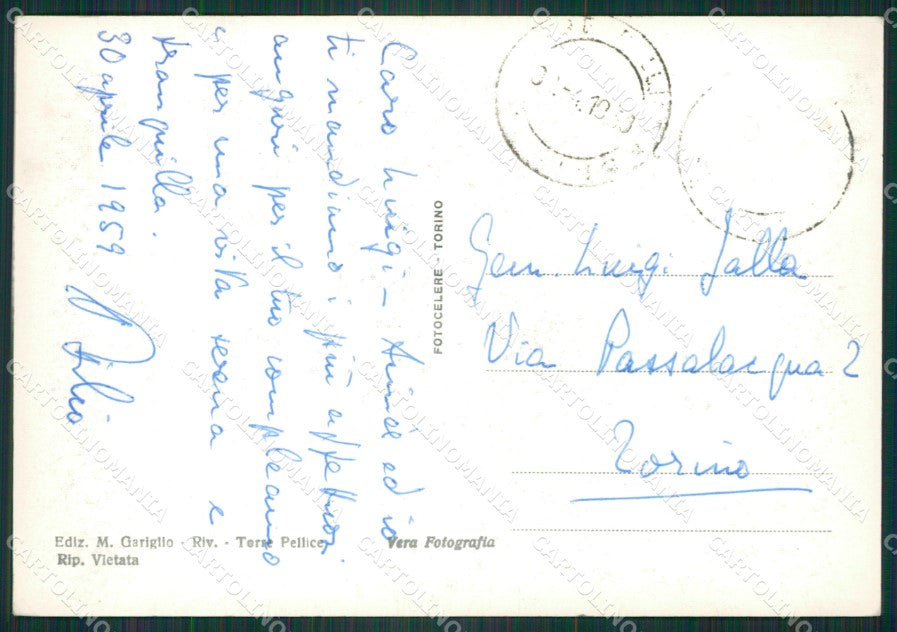 Caro Luigi – Aimé ed io
ti mandiamo i più affettuosi
auguri per il tuo compleanno
e per una vita serena e
tranquilla.
30 aprile 1959
FOTOCELERE - TORINO
Gen. Luigi Jalla
Via Passalacqua 2
Torino
Ediz. M. Gariglio - Riv. - Torre Pellice
Vera Fotografia
Rip. Vietata
CARTOLINOMANIA